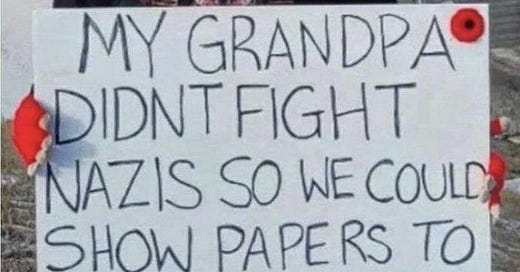 MY GRANDPA
DIDNT FIGHT
NAZIS SO WE COULD
SHOW PAPERS TO